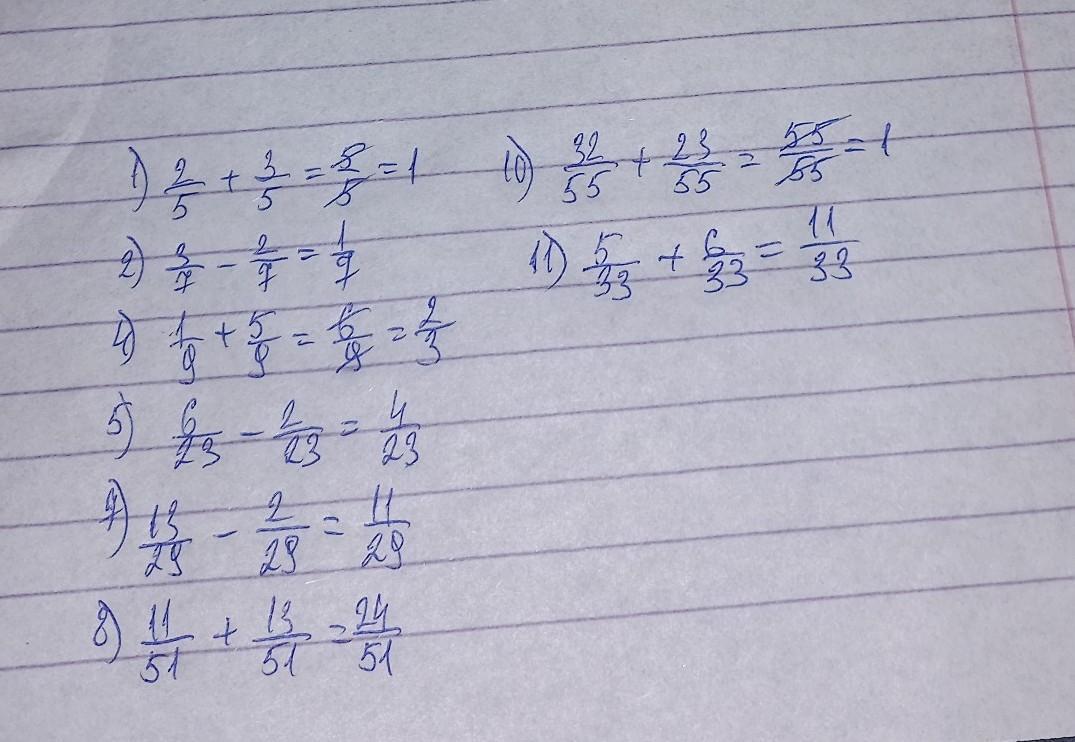 1) 2/5 + 3/5 = 5/5 = 1
2) 3/7 - 2/7 = 1/7
4) 1/9 + 5/9 = 6/9 = 2/3
5) 6/23 - 2/23 = 4/23
7) 13/29 - 2/29 = 11/29
8) 11/51 + 13/51 = 24/51
10) 32/55 + 23/55 = 55/55 = 1
11) 5/33 + 6/33 = 11/33